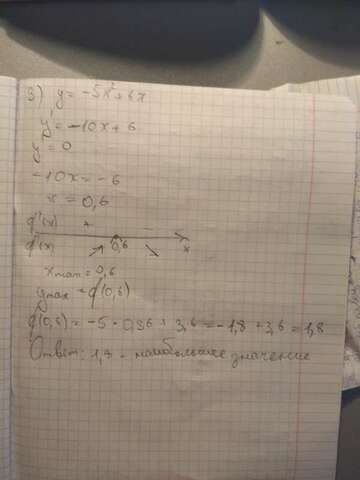 3) y = -5x² + 6x
y' = -10x + 6
y' = 0
-10x = -6
x = 0,6
f'(x) + -
f(x) 0,6 x
xmax = 0,6
ymax = f(0,6)
f(0,6) = -5 · 0,36 + 3,6 = -1,8 + 3,6 = 1,8
Ответ: 1,8 - наибольшее значение